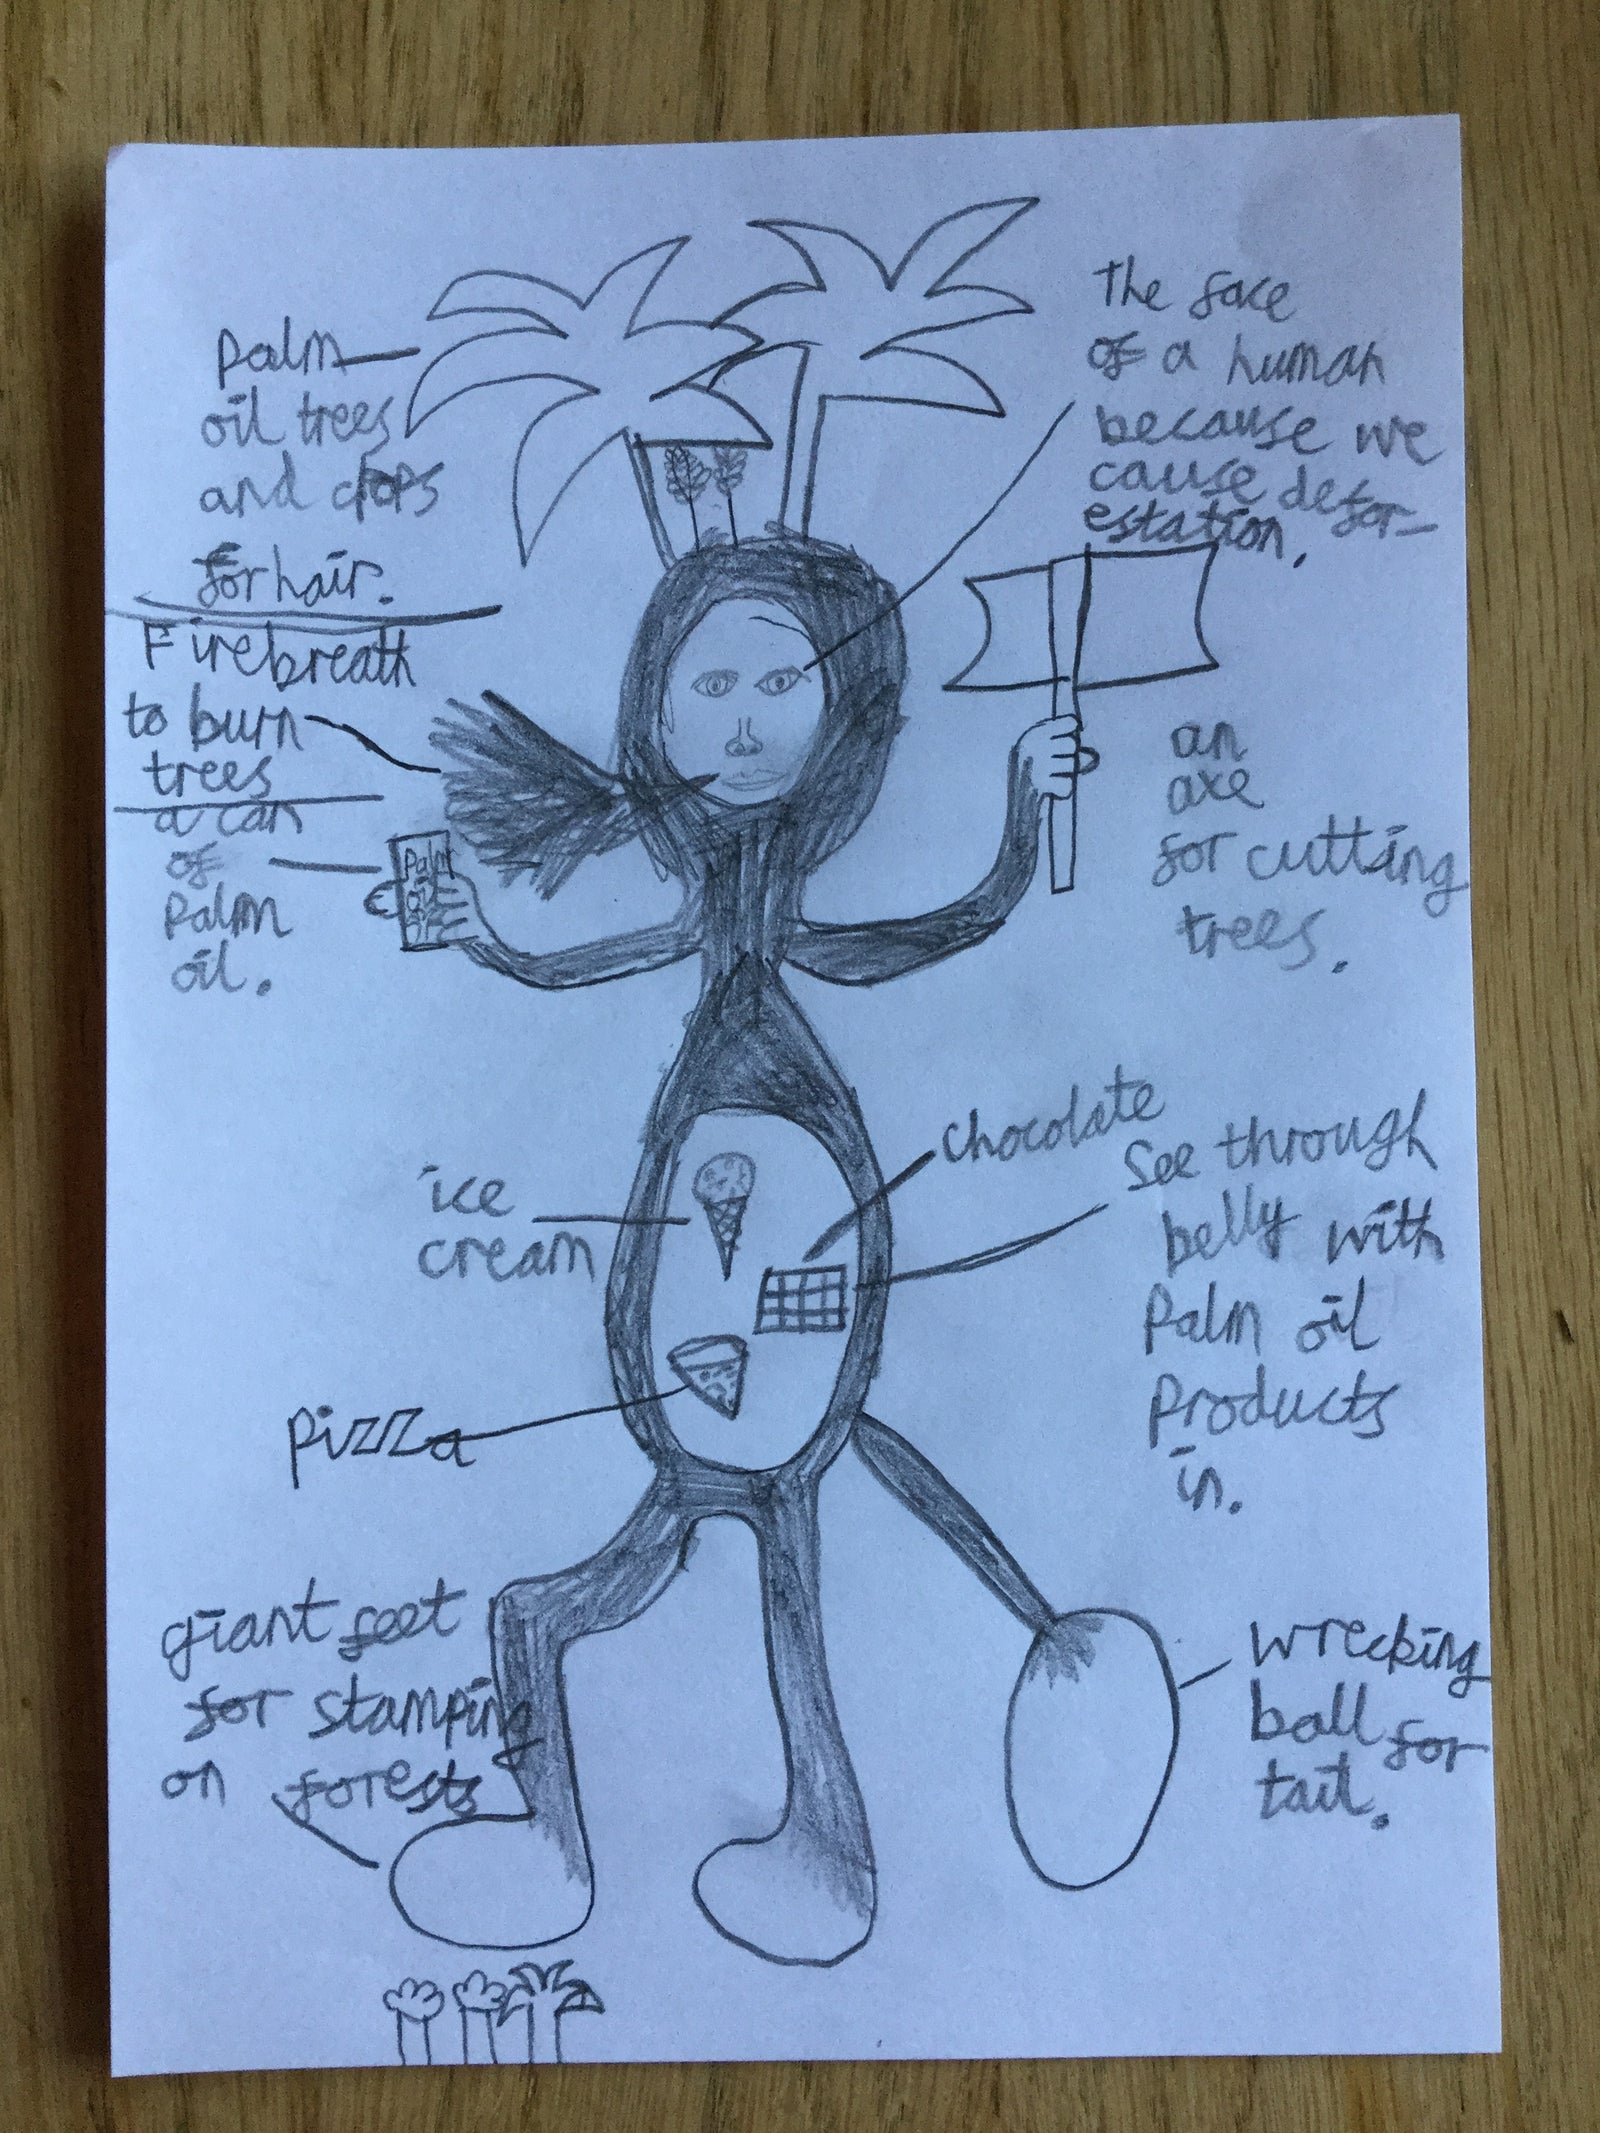 Palm
oil trees
and crops
for hair.
The face
of a human
because we
cause defor-
estation.
Firebreath
to burn
trees
a can
of
Palm
oil.
Palm
oil
an
axe
for cutting
trees.
chocolate
See through
belly with
Palm oil
Products
in.
ice
cream
pizza
giant feet
for stamping
on forests
wrecking
ball for
tail.